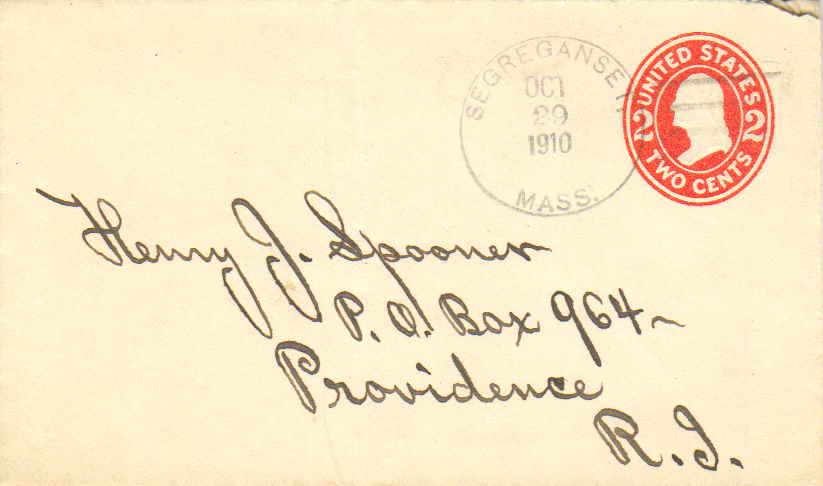 SEGREGANSET
OCT
29
1910
MASS.
UNITED STATES
2 2
TWO CENTS
Henry J. Spooner
P. O. Box 964
Providence
R. I.